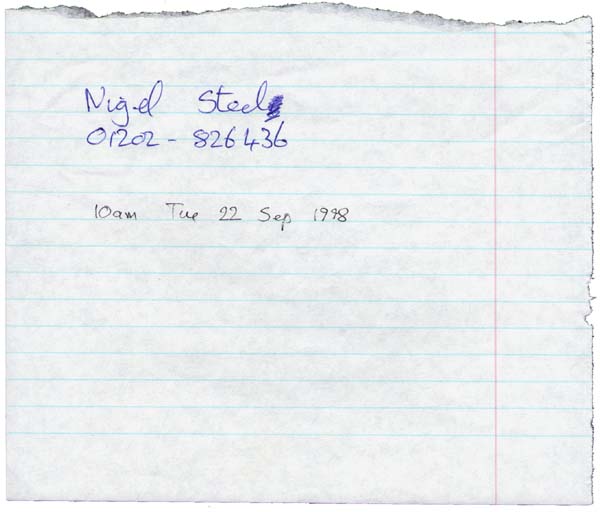 Nigel Steel
01202 - 826436
10am Tue 22 Sep 1998